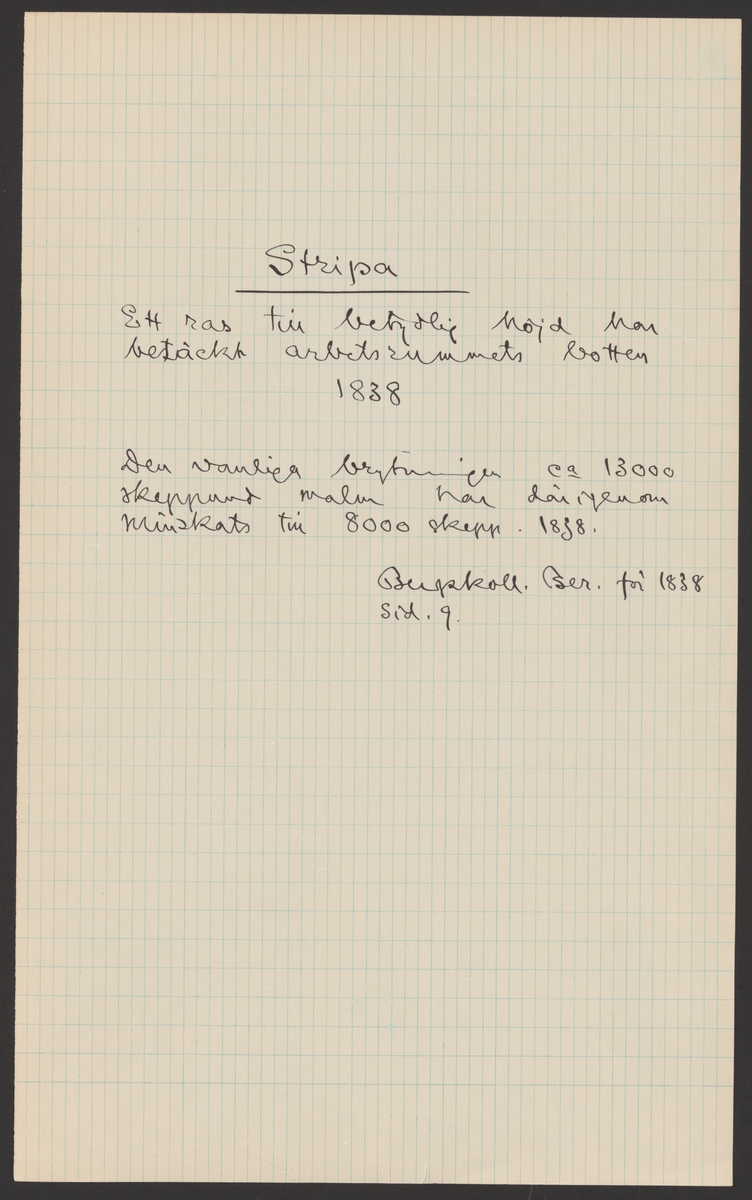 Stripa
Ett ras till betydlig höjd har
betäckt arbetsrummets botten
1838
Den vanliga brytningen ca 13000
skeppund malm har därigenom
minskats till 8000 skepp. 1838.
Bergskoll. Ber. för 1838
Sid. 9.